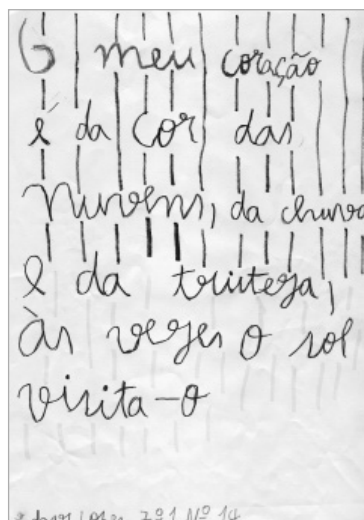 O meu coração
é da cor das
nuvens, da chuva
e da tristeza,
Às vezes o sol
visita-o
7º1 Nº 14